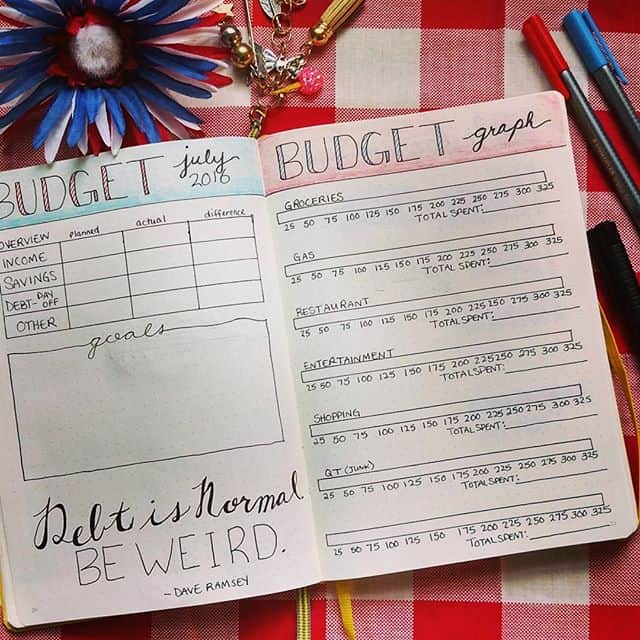 BUDGET july
2016
OVERVIEW planned actual difference
INCOME
SAVINGS
DEBT-PAY
OFF
OTHER
goals
Debt is Normal
BE WEIRD.
-DAVE RAMSEY
BUDGET graph
GROCERIES
25 50 75 100 125 150 175 200 225 250 275 300 325
TOTAL SPENT:
GAS
25 50 75 100 125 150 175 200 225 250 275 300 325
TOTAL SPENT:
RESTAURANT
25 50 75 100 125 150 175 200 225 250 275 300 325
TOTAL SPENT:
ENTERTAINMENT
25 50 75 100 125 150 175 200 225 250 275 300 325
TOTAL SPENT:
SHOPPING
25 50 75 100 125 150 175 200 225 250 275 300 325
TOTAL SPENT:
QT (JUNK)
25 50 75 100 125 150 175 200 225 250 275 300 325
TOTAL SPENT:
25 50 75 100 125 150 175 200 225 250 275 300 325
TOTAL SPENT: